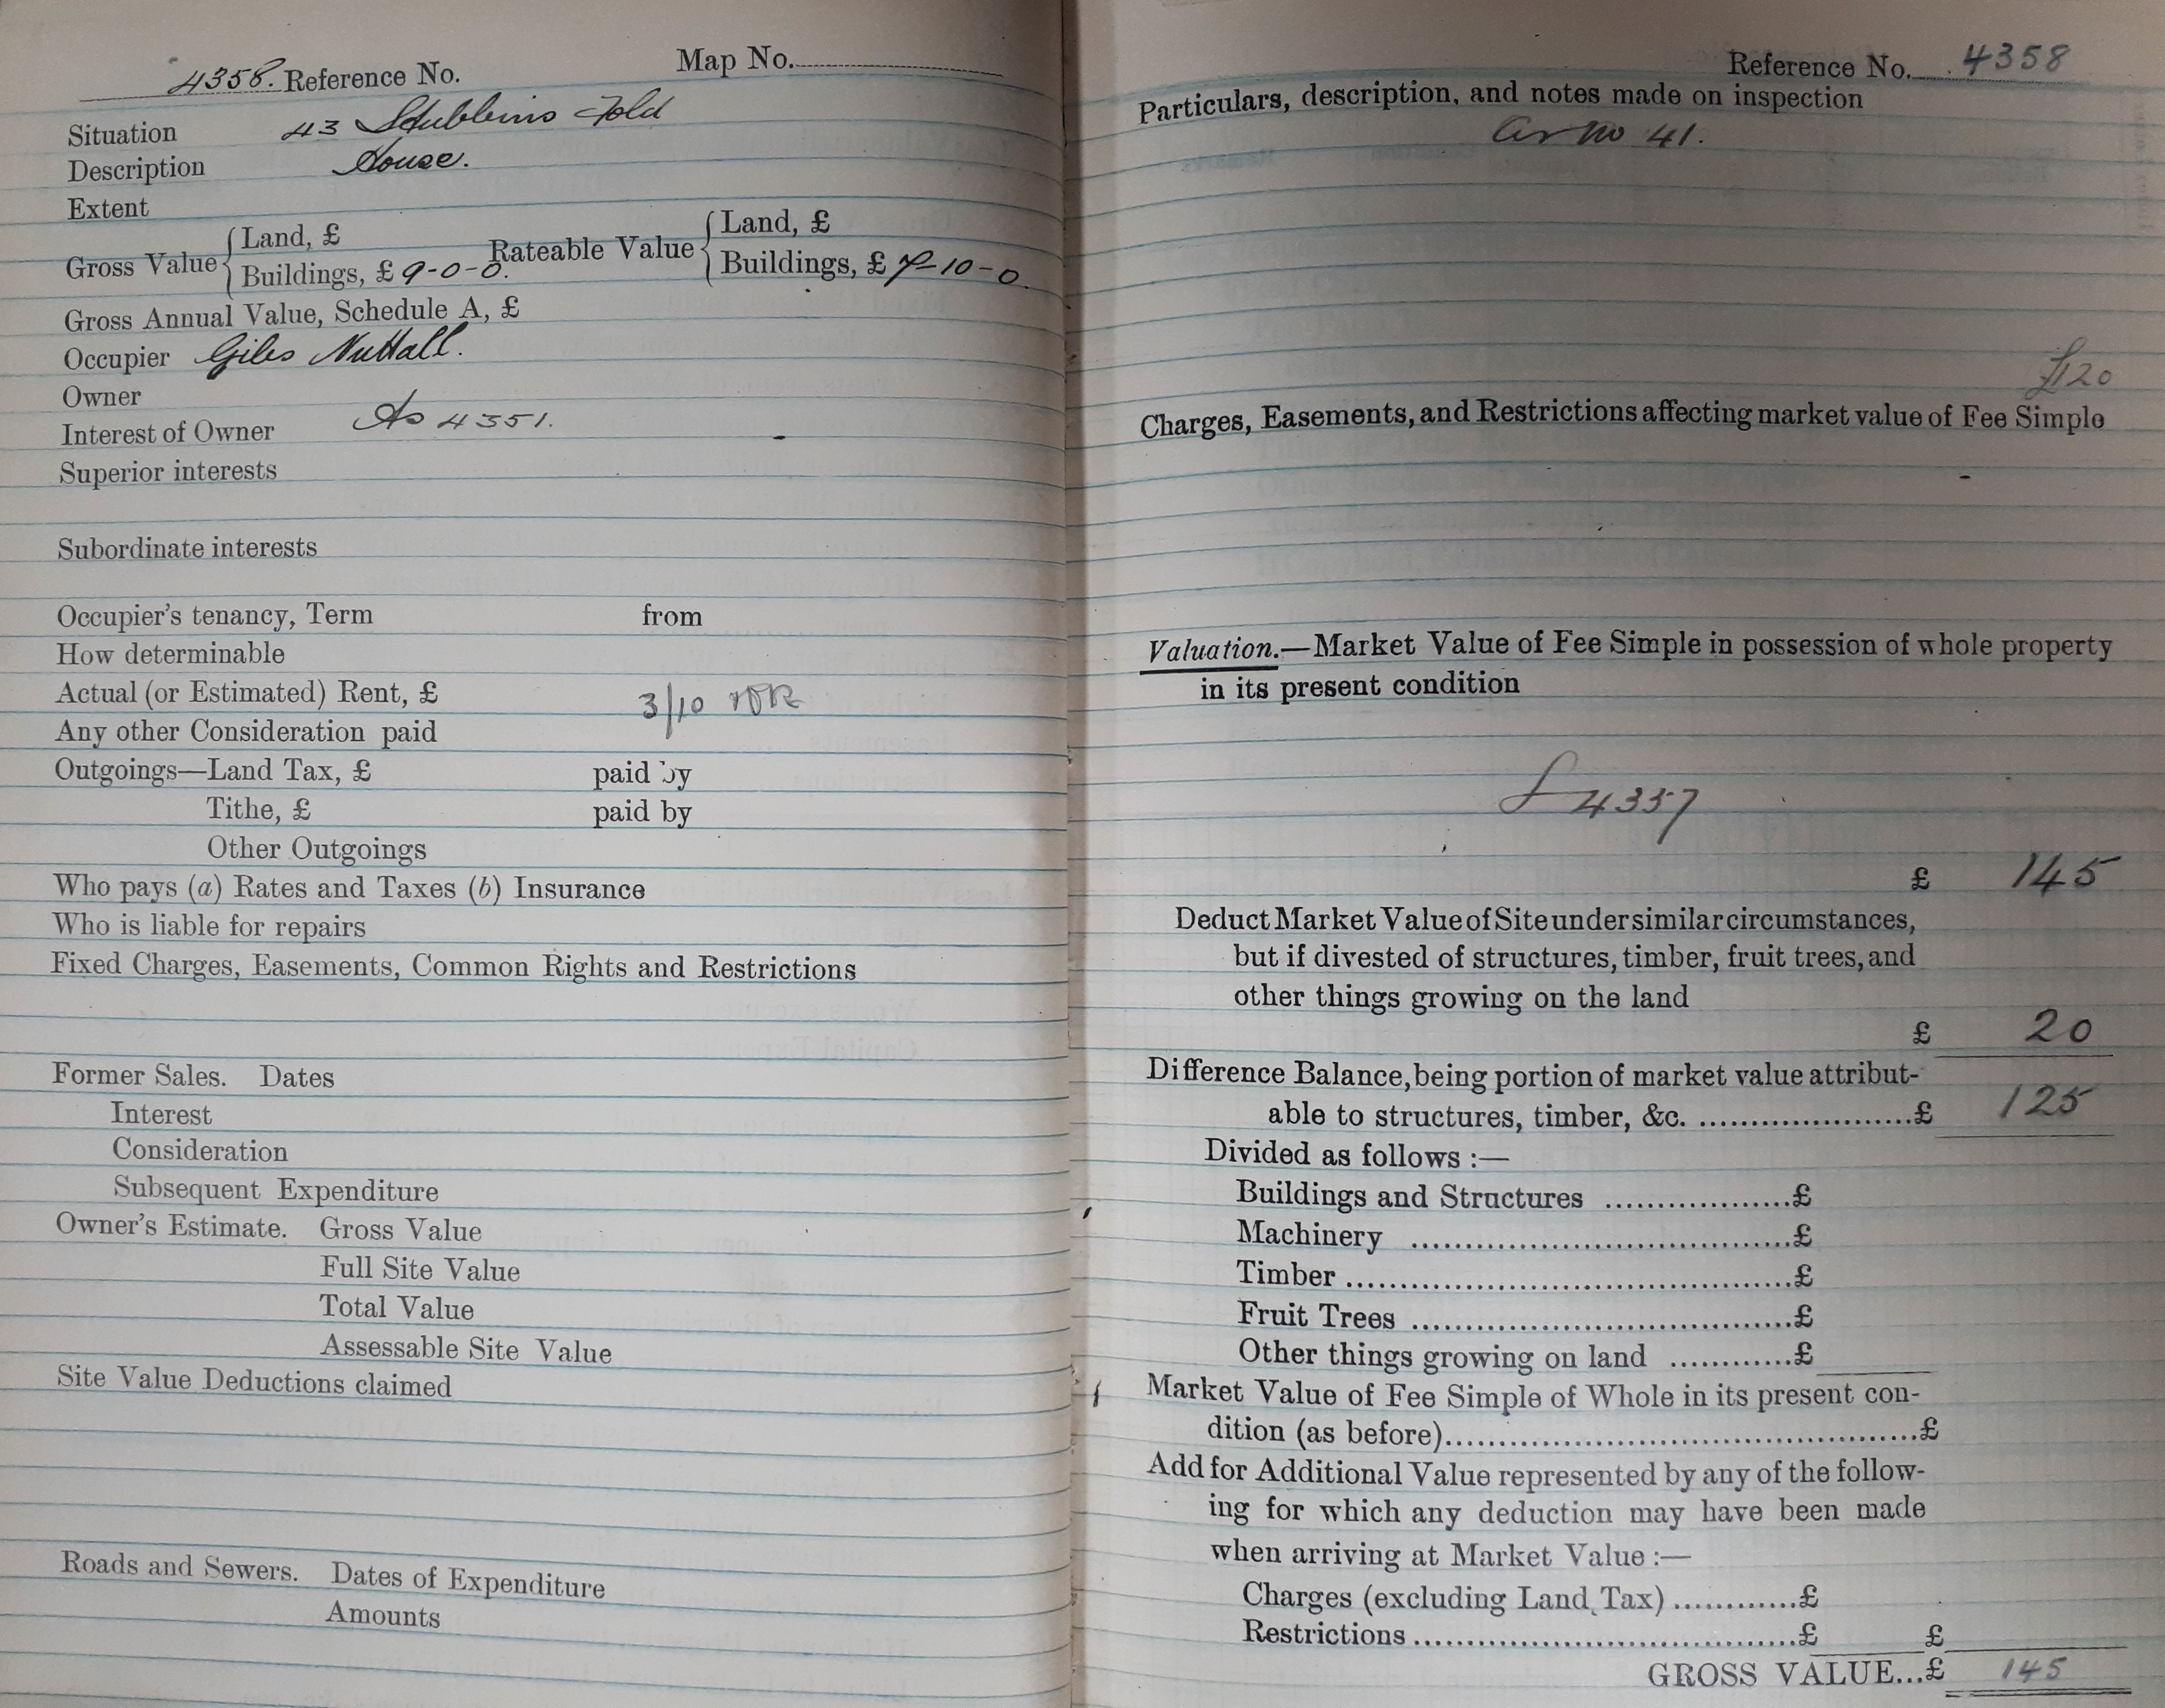 4358. Reference No. Map No.
Situation 43 Stubbins Fold
Description House.
Extent
Gross Value { Land, £
Buildings, £ 9-0-0. Rateable Value { Land, £
Buildings, £ 7-10-0.
Gross Annual Value, Schedule A, £
Occupier Giles Nuttall.
Owner
Interest of Owner As 4351.
Superior interests
Subordinate interests
Occupier's tenancy, Term from
How determinable
Actual (or Estimated) Rent, £ 3/10
Any other Consideration paid
Outgoings—Land Tax, £ paid by
Tithe, £ paid by
Other Outgoings
Who pays (a) Rates and Taxes (b) Insurance
Who is liable for repairs
Fixed Charges, Easements, Common Rights and Restrictions
Former Sales. Dates
Interest
Consideration
Subsequent Expenditure
Owner's Estimate. Gross Value
Full Site Value
Total Value
Assessable Site Value
Site Value Deductions claimed
Roads and Sewers. Dates of Expenditure
Amounts
Reference No. 4358
Particulars, description, and notes made on inspection
as no 41.
£120
Charges, Easements, and Restrictions affecting market value of Fee Simple
Valuation.—Market Value of Fee Simple in possession of whole property
in its present condition
4357
£ 145
Deduct Market Value of Site under similar circumstances,
but if divested of structures, timber, fruit trees, and
other things growing on the land
£ 20
Difference Balance, being portion of market value attribut-
able to structures, timber, &c. ......................£ 125
Divided as follows :—
Buildings and Structures ...................£
Machinery ......................................£
Timber .............................................£
Fruit Trees ......................................£
Other things growing on land ............£
Market Value of Fee Simple of Whole in its present con-
dition (as before)...............................................£
Add for Additional Value represented by any of the follow-
ing for which any deduction may have been made
when arriving at Market Value :—
Charges (excluding Land Tax) .............£
Restrictions ......................................£ £
GROSS VALUE...£ 145